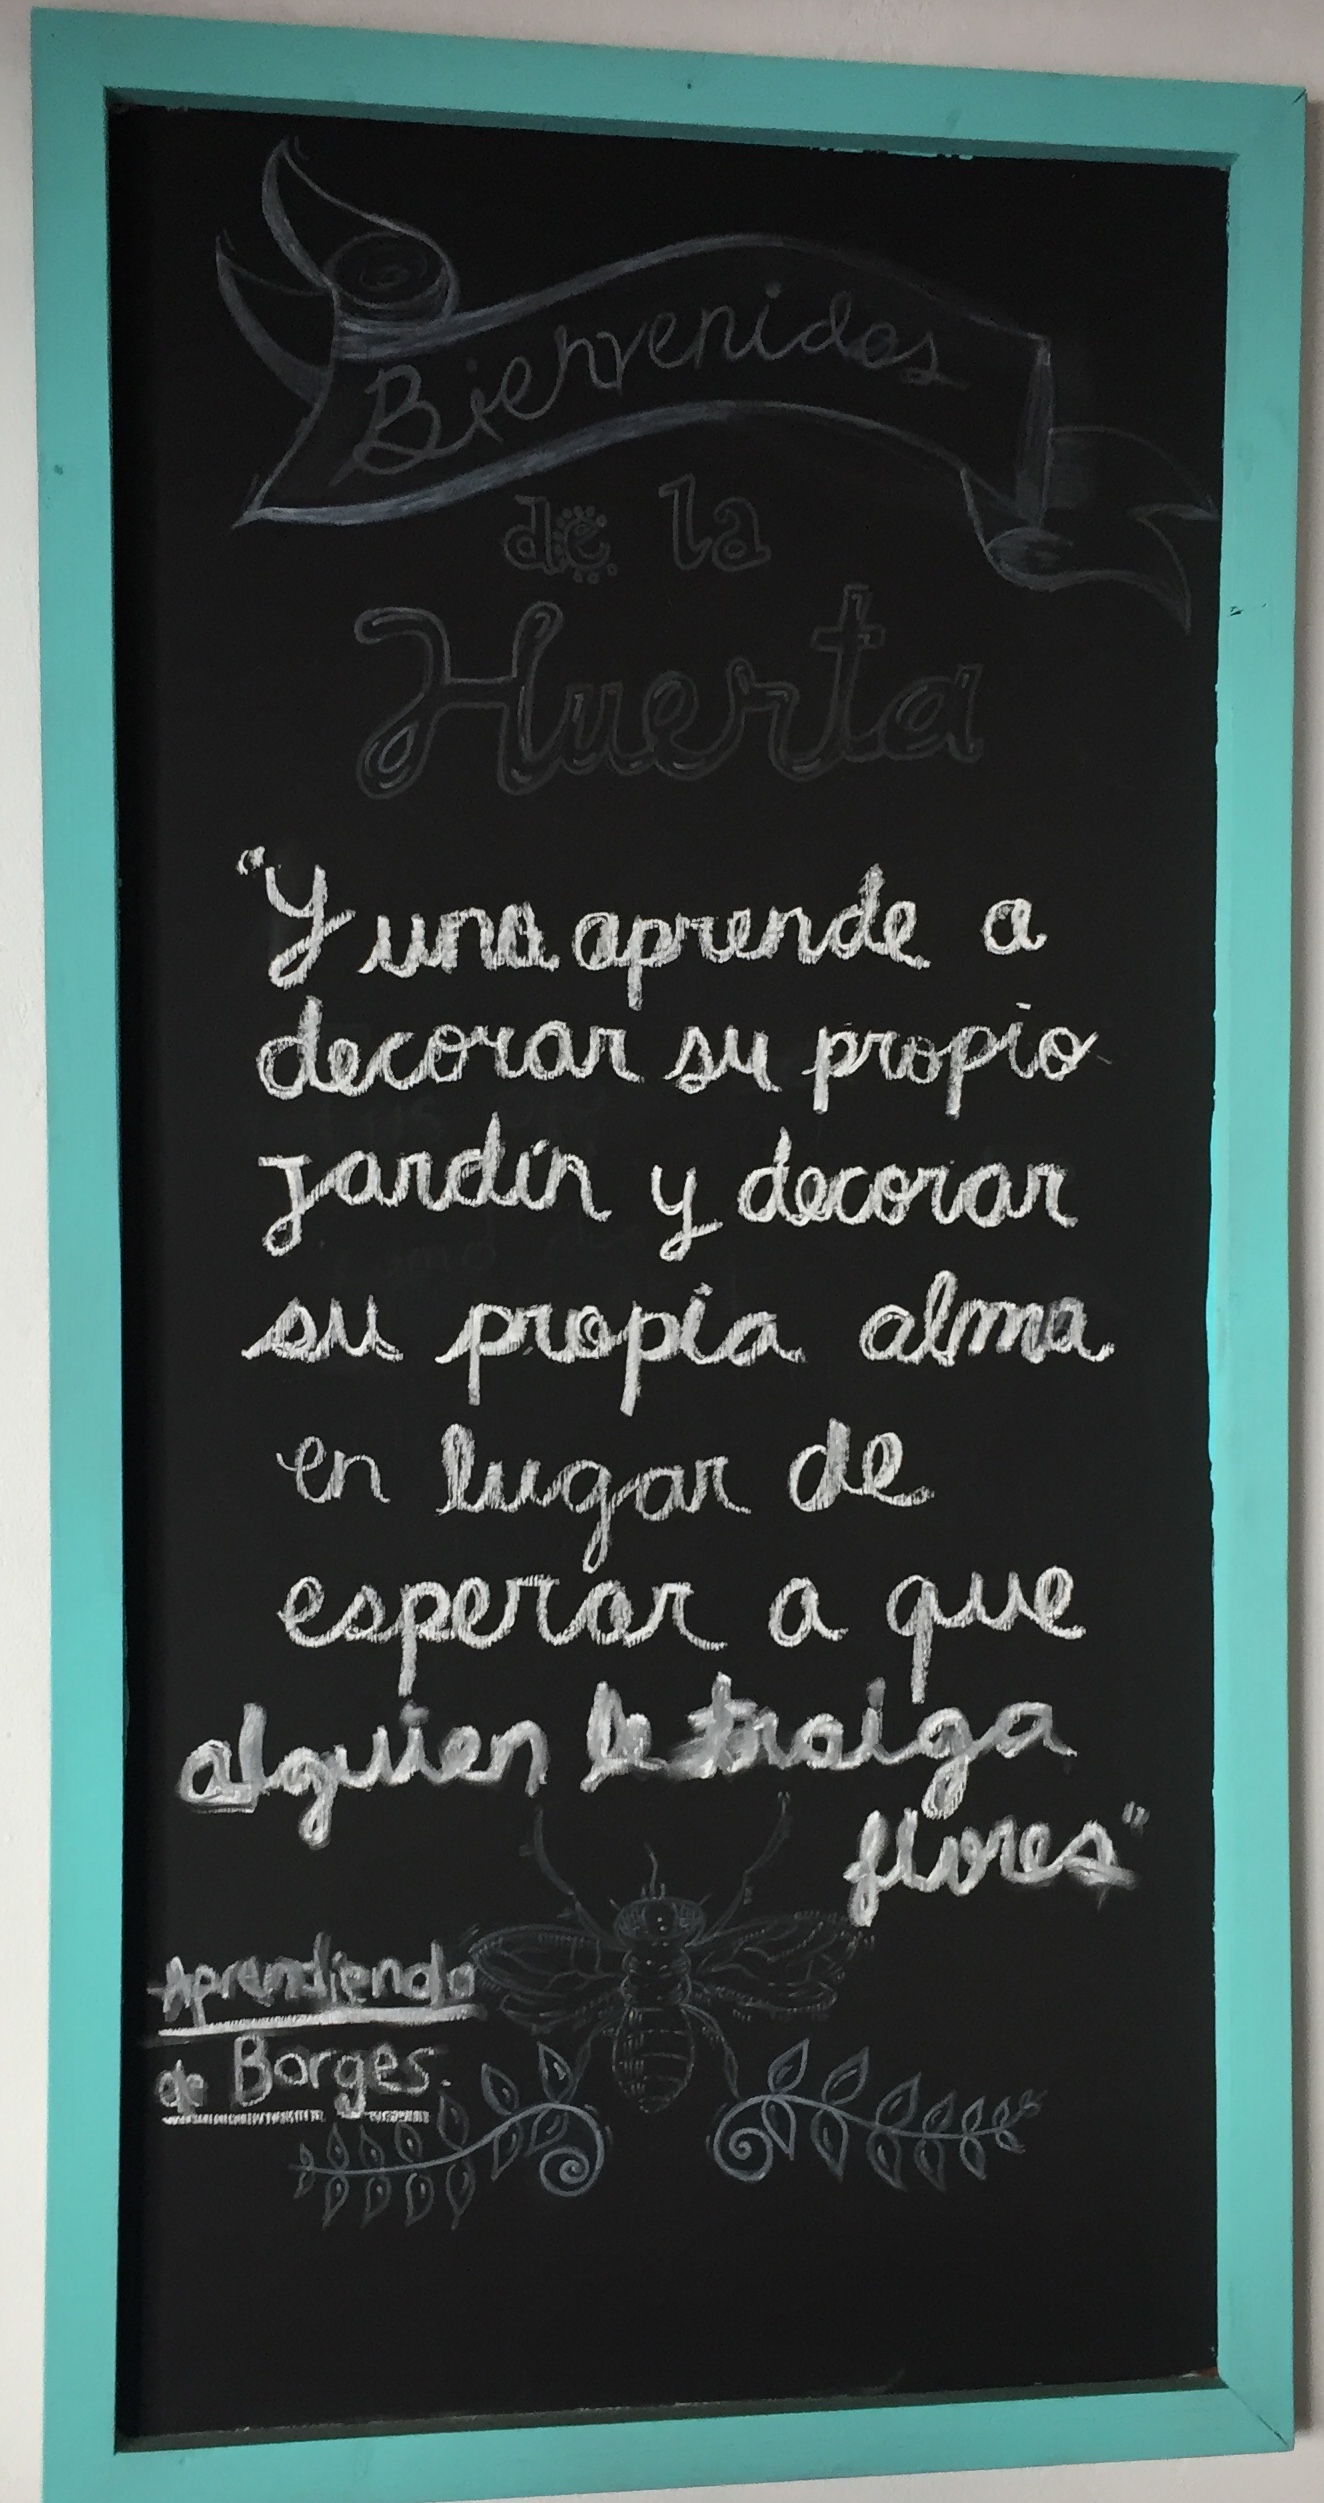 Bienvenidos
de la
Huerta
"Y una aprende a
decorar su propio
jardín y decorar
su propia alma
en lugar de
esperar a que
alguien le traiga
flores"
Aprendiendo
de Borges.